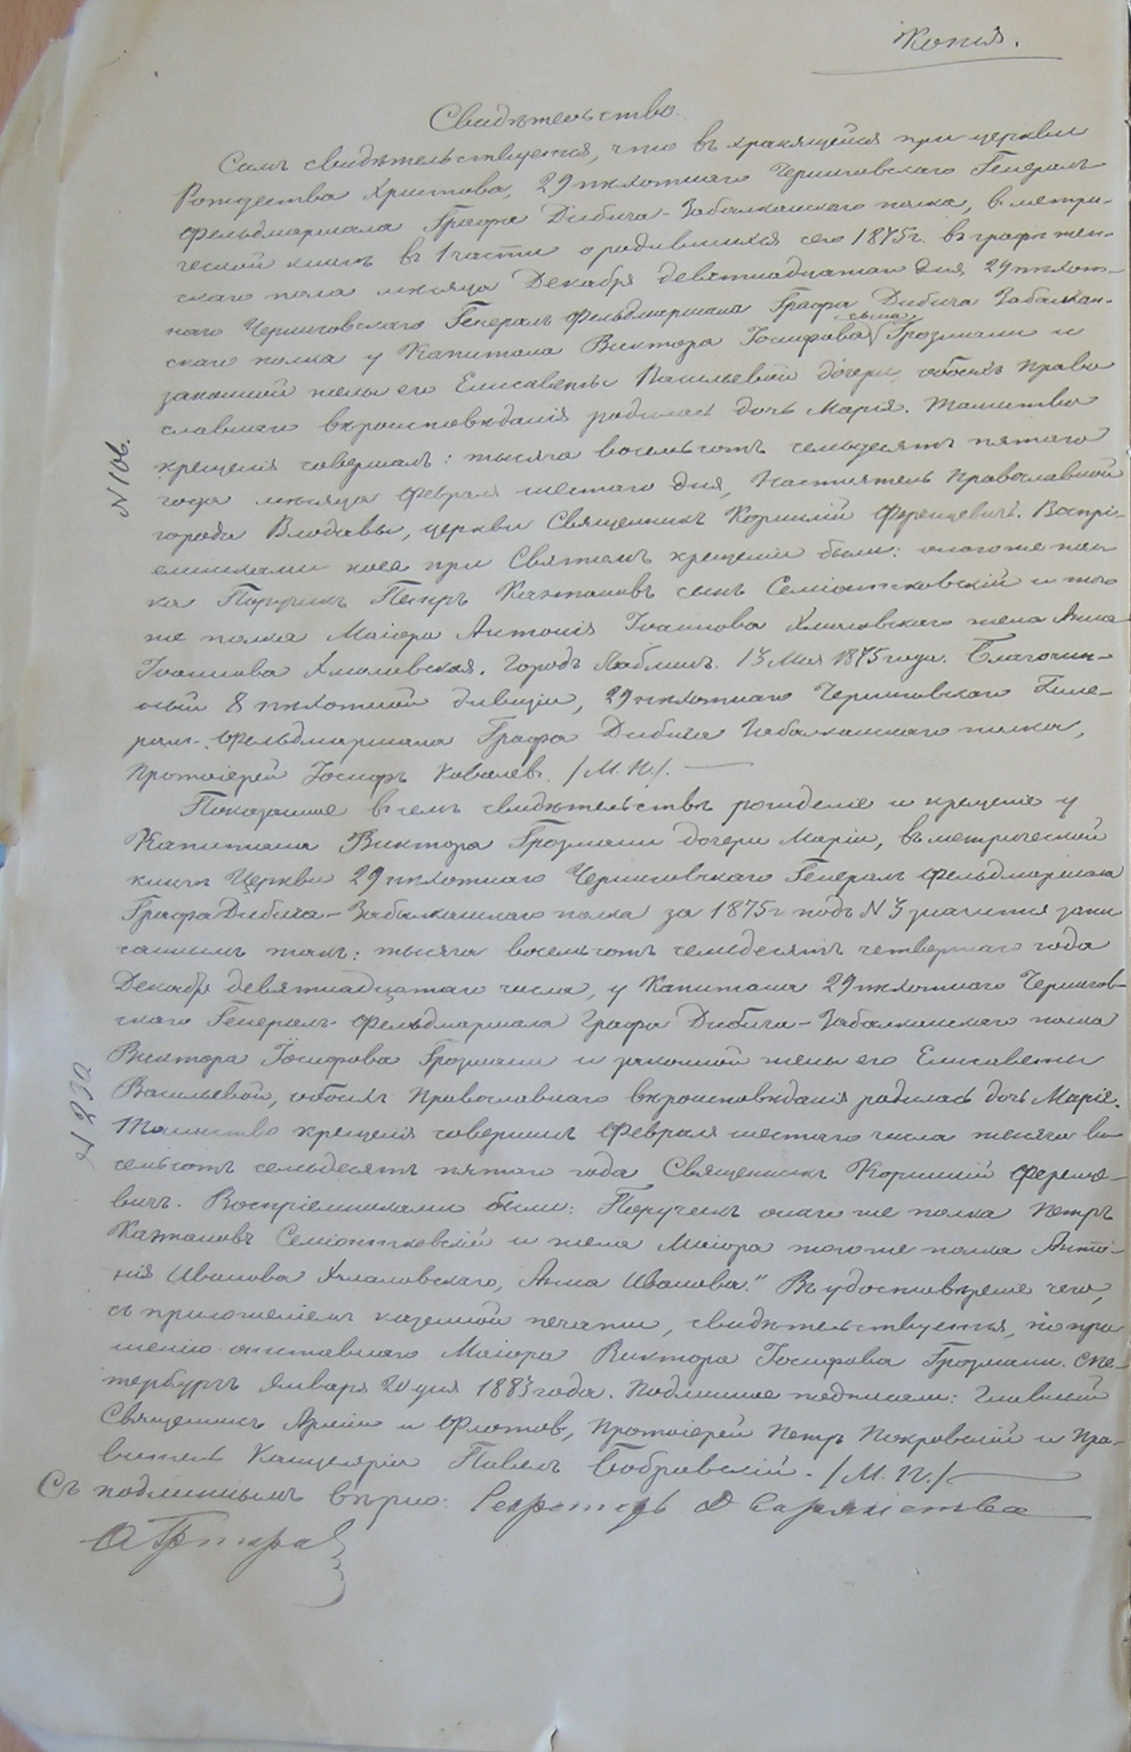 Копія.
Свидѣтельство.
Симъ свидѣтельствуется, что въ хранящейся при церкви
Рождества Христова, 29 пѣхотнаго Черниговскаго Генералъ
Фельдмаршала Графа Дибича-Забалканскаго полка, в метри-
ческой книгѣ въ 1 части о родившихся сего 1875 г. въ графѣ жен-
скаго пола мѣсяца Декабря девятнадцатаго дня, 29 пѣхот-
наго Черниговскаго Генералъ Фельдмаршала Графа Дибича Забалкан-
скаго полка у Капитана Виктора Іосифова сына Грозмани и
законной жены его Елисаветы Васильевой дочери, обоихъ право
славнаго вѣроисповѣданія родилась дочь Марія. Таинство
крещенія совершалъ: тысяча восемьсотъ семьдесятъ пятаго
года мѣсяца Февраля шестаго дня, Настоятель Православной
города Влодавы, церкви Священникъ Корнилій Ференцевичъ. Воспрі-
емниками ея при Святомъ крещеніи были: онаго же пол
ка Поручикъ Петръ Каэтановъ сынъ Семіонтковскій и того
же полка Маіора Антонія Іоаннова Хмалевскаго жена Анна
Іоаннова Хмалевская. Городъ Люблинъ. 13 Мая 1875 года. Благочин-
ный 8 пѣхотной дивизіи, 29 пѣхотнаго Черниговскаго Гене-
рал-Фельдмаршала Графа Дибича Забалканскаго полка,
Протоіерей Іосифъ Ковалевъ. /М. П./. —
Показанное в семъ свидѣтельствѣ рожденіе и крещеніе у
Капитана Виктора Грозмани дочери Маріи, въ метрической
книгѣ Церкви 29 пѣхотнаго Черниговскаго Генералъ Фельдмаршала
Графа Дибича-Забалканскаго полка за 1875 г подъ N 3 значится запи
саннымъ такъ: тысяча восемьсотъ семьдесятъ четвертаго года
Декабря девятнадцатаго числа, у Капитана 29 пѣхотнаго Чернигов-
скаго Генералъ-Фельдмаршала Графа Дибича-Забалканскаго полка
Виктора Іосифова Грозмани и законной жены его Елисаветы
Васильевой, обоихъ Православнаго вѣроисповѣданія родилась дочь Марія.
Таинство крещенія совершилъ Февраля шестаго числа тысяча во
семьсотъ семьдесятъ пятаго года Священникъ Корнилій Ференце-
вичъ. Воспріемниками были: Поручикъ онаго же полка Петръ
Каэтановъ Семіонтковскій и жена Маіора того же полка Анто-
нія Иванова Хмалевскаго, Анна Иванова." Въ удостовѣреніе чего,
съ приложеніемъ казенной печати, свидѣтельствуется, по про
шенію отставнаго Маіора Виктора Іосифова Грозмани. С Пе-
тербургъ Января 20 дня 1883 года. Подлинное подписали: Главный
Священникъ Арміи и Флотовъ, Протоіерей Петръ Покровскій и Пра-
витель Канцеляріи Павелъ Бобровскій. /М. П./ —
Съ подлиннымъ вѣрно: Секретарь Дворянства
N 106.
N 230